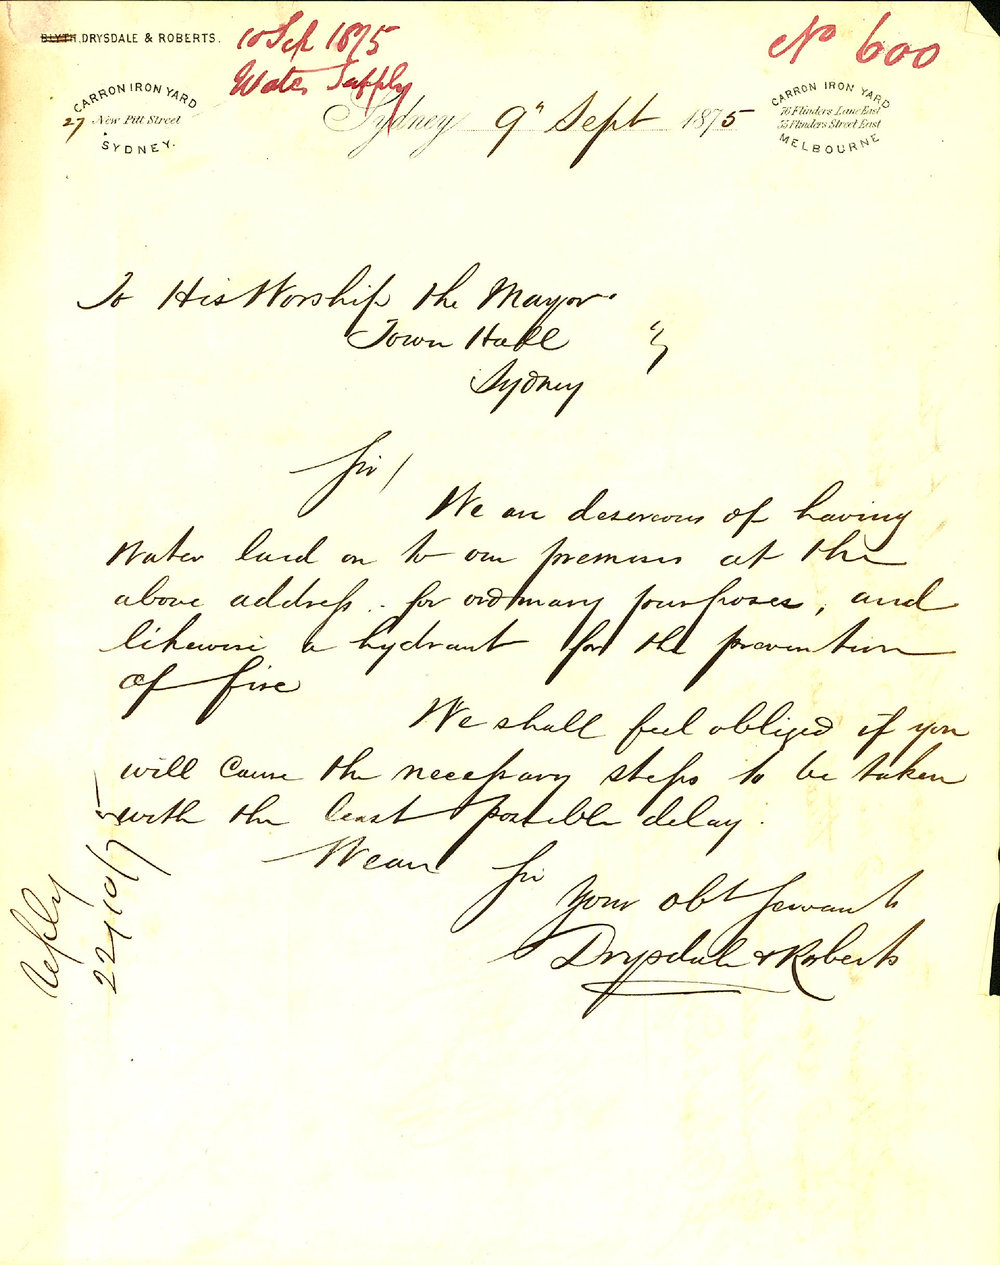 BLYTH, DRYSDALE & ROBERTS.
10 Sep 1875
Water Supply
No 600
CARRON IRON YARD
27 New Pitt Street
SYDNEY.
Sydney 9" Sept 1875
CARRON IRON YARD
76 Flinders Lane East
55 Flinders Street East
MELBOURNE
To His Worship the Mayor
Town Hall
Sydney
Sir/
We are deserous of having
Water laid on to our premises at the
above address. for ordinary purposes, and
likewise a hydrant for the prevention
of fire
We shall feel obliged if you
will cause the necessary steps to be taken
with the least possible delay.
We are Sir
Your obt Servants
Drysdale & Roberts
Reply
22/10/75